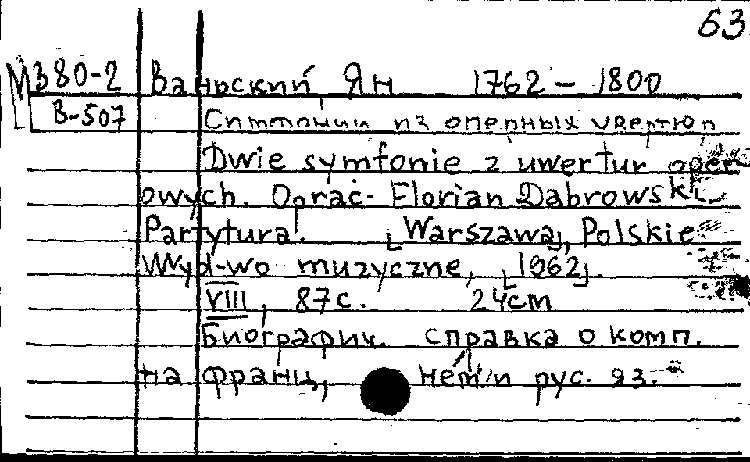 63
М380-2 Ваньский, Ян 1762 – 1800
В-507 Симфонии из оперных увертюр
Dwie symfonie z uwertur oper-
owych. Oprac. Florian Dąbrowski.
Partytura. [Warszawa], Polskie
Wyd-wo muzyczne, [1962].
VIII, 87с. 24cm
Биографич. справка о комп.
на франц., нем. и рус. яз.